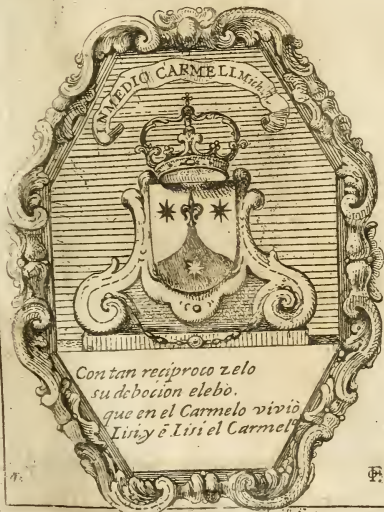 IN MEDIO CARMELI Mich. 7
Con tan reciproco zelo
su deboción elebò.
que en el Carmelo viviò
Lisi, y ē Lisi el Carmelº